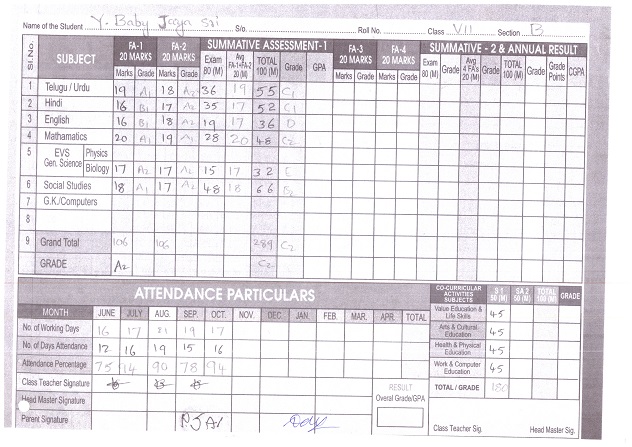 Name of the Student Y. Baby Jaya Sri S/o. Roll No. Class VII Section B
Sl.No. SUBJECT FA-1 20 MARKS FA-2 20 MARKS SUMMATIVE ASSESSMENT-1 FA-3 20 MARKS FA-4 20 MARKS SUMMATIVE - 2 & ANNUAL RESULT
Marks Grade Marks Grade Exam 80 (M) Avg FA-1+FA-2 20 (M) TOTAL 100 (M) Grade GPA Marks Grade Marks Grade Exam 80 (M) Grade Avg 4 FA's 20 (M) Grade TOTAL 100 (M) Grade Grade Points CGPA
1 Telugu / Urdu 19 A1 18 A2 36 19 55 C1
2 Hindi 16 B1 17 A2 35 17 52 C1
3 English 16 B1 18 A2 19 17 36 D
4 Mathamatics 20 A1 19 A1 28 20 48 C2
5 EVS Gen. Science Physics
Biology 17 A2 17 A2 15 17 32 E
6 Social Studies 18 A1 17 A2 48 18 66 B2
7 G.K./Computers
8
9 Grand Total 106 106 289 C2
GRADE A2 C2
ATTENDANCE PARTICULARS
MONTH JUNE JULY AUG. SEP. OCT. NOV. DEC JAN. FEB. MAR. APR. TOTAL
No. of Working Days 16 17 21 19 17
No. of Days Attendance 12 16 19 15 16
Attendance Percentage 75 94 90 78 94
Class Teacher Signature
Head Master Signature
Parent Signature
RESULT
Overal Grade/GPA
CO-CURRICULAR ACTIVITIES SUBJECTS S 1 50 (M) SA 2 50 (M) TOTAL 100 (M) GRADE
Value Education & Life Skills 45
Arts & Cultural Education 45
Health & Physical Education 45
Work & Computer Education 45
TOTAL / GRADE 180
Class Teacher Sig. Head Master Sig.